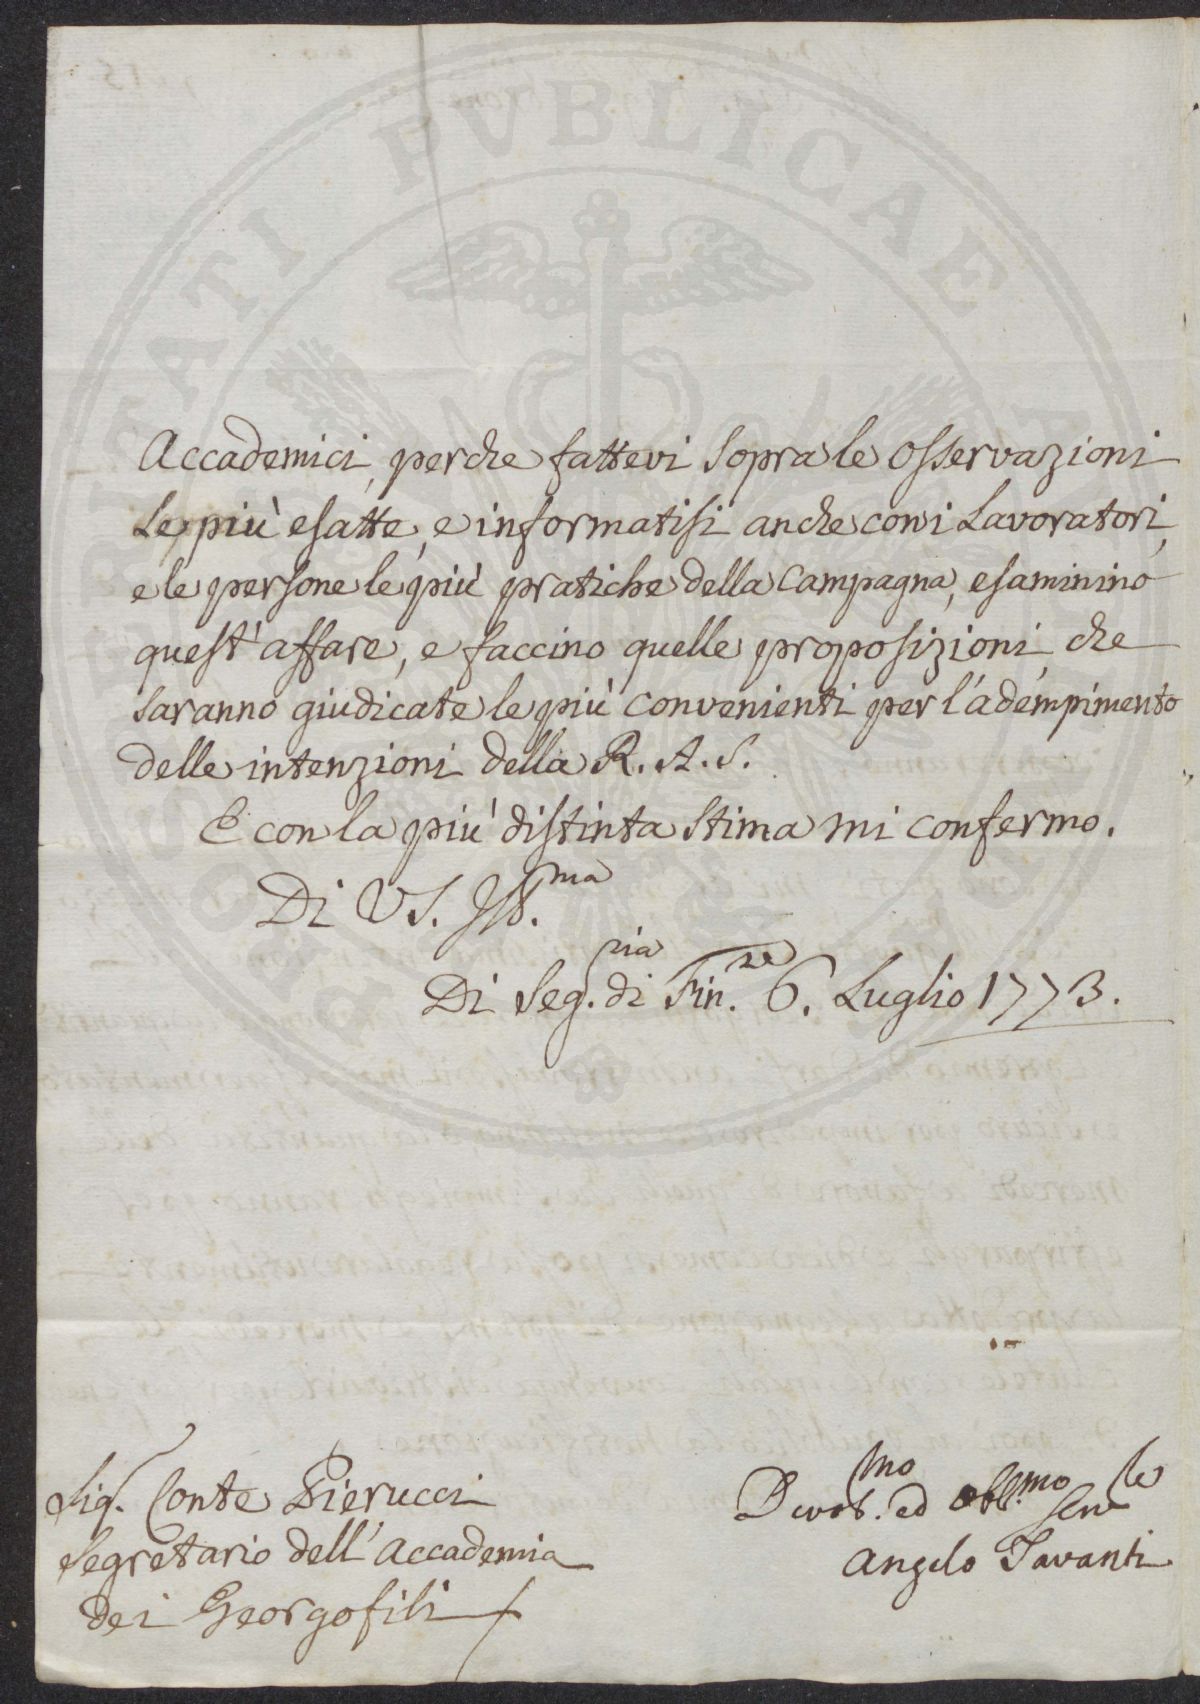 Accademici, perche fattevi sopra le osservazioni
le più esatte, e informatisi anche con i Lavoratori,
e le persone le più pratiche della Campagna, esaminino
quest'affare, e faccino quelle proposizioni, che
saranno giudicate le più convenienti per l'adempimento
delle intenzioni della R. A. S.
E con la più distinta stima mi confermo.
Di VS. Ill.ma
Di Seg.ria di Fin.ze 6. Luglio 1773.
Sig. Conte Pierucci
Segretario dell'Accademia
dei Georgofili
Devot.mo ed Obbl.mo Serv.le
Angelo Tavanti
PVBLICAE